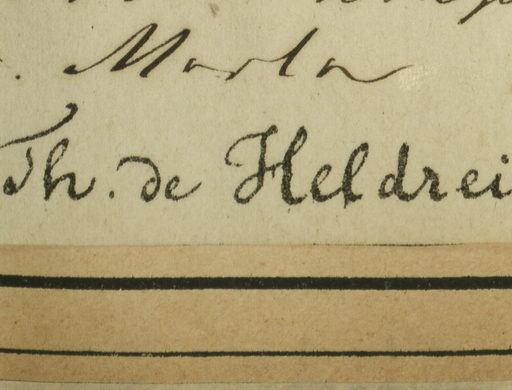 Marla
Th. de Heldrei